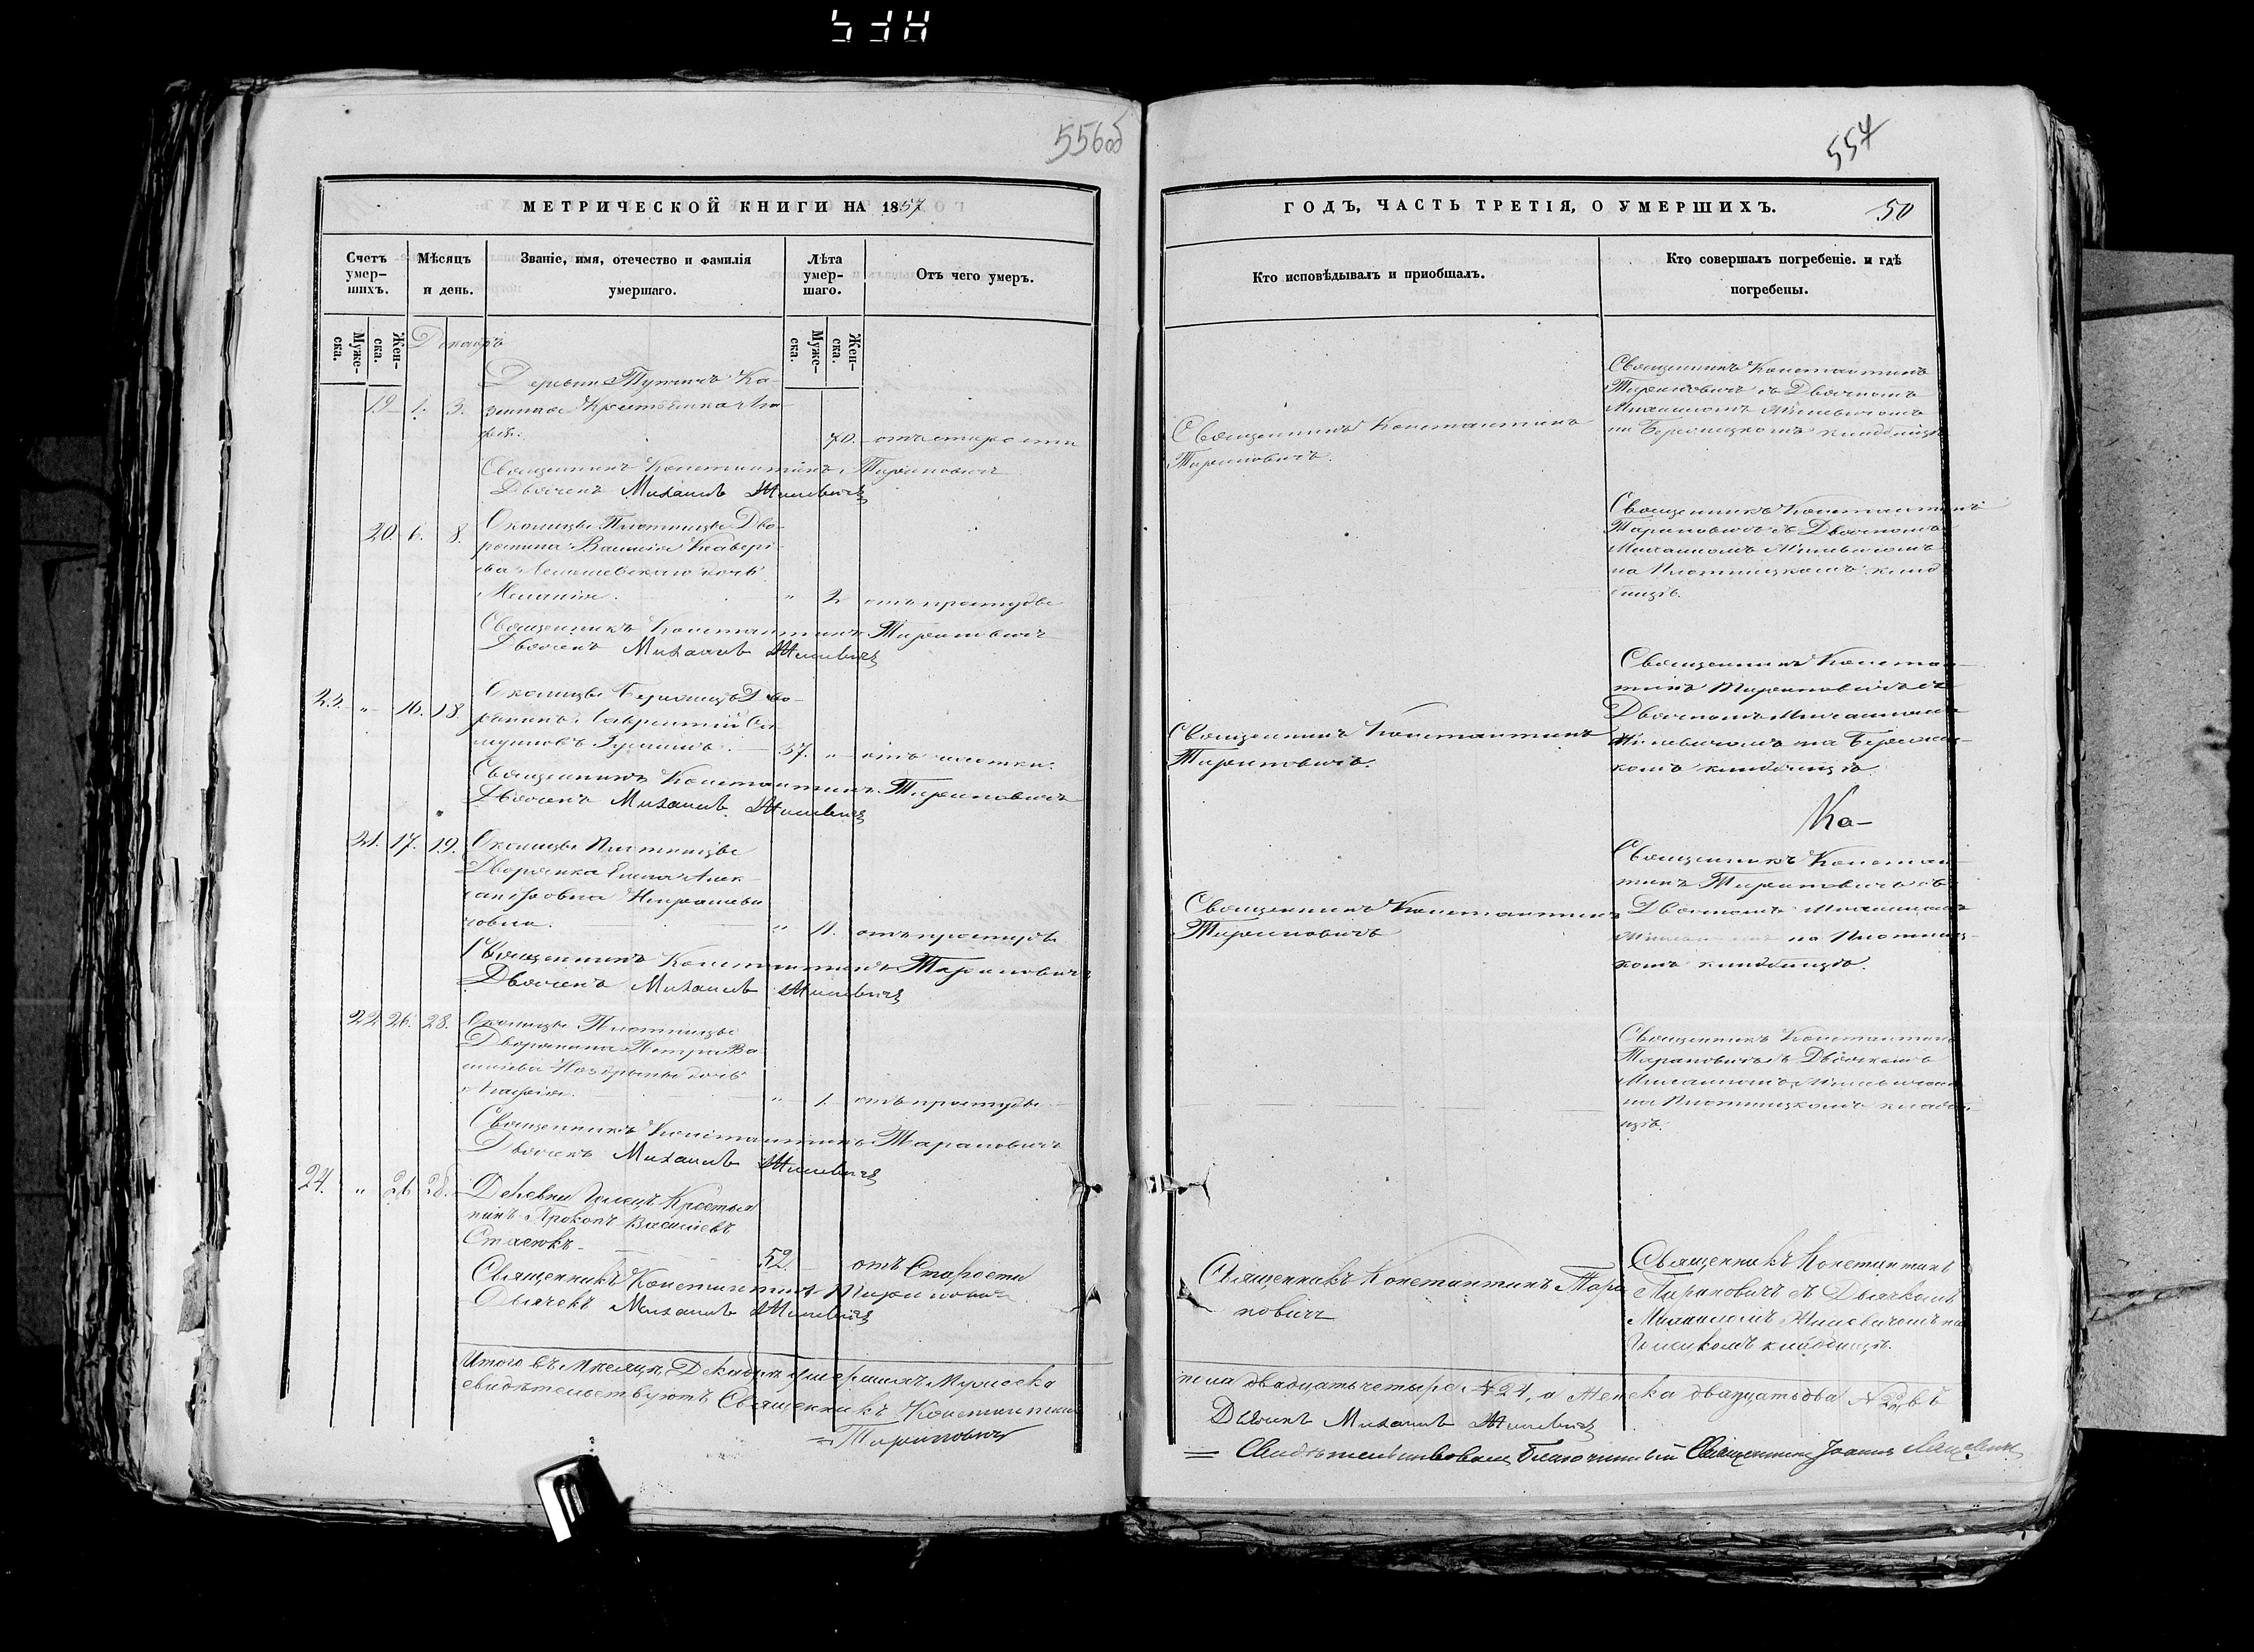 556об
МЕТРИЧЕСКОЙ КНИГИ НА 1857
Счетъ умер-шихъ.
Мѣсяцъ и день.
Званіе, имя, отечество и фамилія умершаго.
Лѣта умер-шаго.
Отъ чего умеръ.
Муже-ска.
Жен-ска.
Декабрь
Муже-ска.
Жен-ска.
Деревни Ка-
19 1. 3. зенная Крестьянка Ага-
фія. 70. отъ старости
Священникъ Константинъ Тарановичъ
Дьячекъ Михаилъ Жилевичъ
20. 6. 8. Околицы Плотницы Дво-
рянина Василія Ксавері-
ева дочь
Меланія. " 2 отъ простуды
Священникъ Константинъ Тарановичъ
Дьячекъ Михаилъ Жилевичъ
23. " 16. 18. Околицы Дво-
рянинъ Лаврентій
37. " отъ
Священникъ Константинъ Тарановичъ
Дьячекъ Михаилъ Жилевичъ
21. 17. 19. Околицы Плотницы
Дворянка Елена Алек-
сандровна
" 11. отъ простуды
Священникъ Константинъ Тарановичъ
Дьячекъ Михаилъ Жилевичъ
22 26. 28. Околицы Плотницы
Дворянина Петра Ва-
силіева дочь
Агафія. " 1. отъ простуды
Священникъ Константинъ Тарановичъ
Дьячекъ Михаилъ Жилевичъ
24. " 26 28. Деревни Крестья
нинъ Прокопъ Василіевъ
Стасюкъ 52. отъ Старости
Священникъ Константинъ Тарановичъ
Дьячекъ Михаилъ Жилевичъ
Итого въ Мѣсяцѣ Декабрѣ умершихъ Мужеска
свидѣтельствуютъ Священникъ Константинъ
=Тарановичъ
557
ГОДЪ, ЧАСТЬ ТРЕТІЯ, О УМЕРШИХЪ.
50
Кто исповѣдывалъ и приобщалъ.
Кто совершалъ погребеніе. и гдѣ погребены.
Священникъ Константинъ
Тарановичъ
Священникъ Константинъ
Тарановичъ съ Дьячкомъ
Михаиломъ Жилевичомъ
на кладбищѣ
Священникъ Константинъ
Тарановичъ съ Дьячкомъ
Михаиломъ Жилевичомъ
на Плотницкомъ клад
бищѣ.
Священникъ Константинъ
Тарановичъ.
Священникъ Констан-
тинъ Тарановичъ съ
Дьячкомъ Михаиломъ
Жилевичомъ на
комъ кладбищѣ.
Ка-
Священникъ Константинъ
Тарановичъ
Священникъ Констан-
тинъ Тарановичъ съ
Дьячкомъ Михаиломъ
на Плотниц-
комъ кладбищѣ.
Священникъ Константинъ
Тарановичъ съ Дьячкомъ
Михаиломъ Жилевичомъ
на Плотницкомъ кладби-
щѣ.
Священникъ Константинъ Тара
новичъ
Священникъ Константинъ
Тарановичъ съ Дьячкомъ
Михаиломъ Жилевичомъ на
кладбищѣ.
пола двадцать четыре №24, а Женска двадцать два №22, въ
Дьячекъ Михаилъ Жилевичъ
= Свидѣтельствовалъ Благочинный Священникъ Іоаннъ